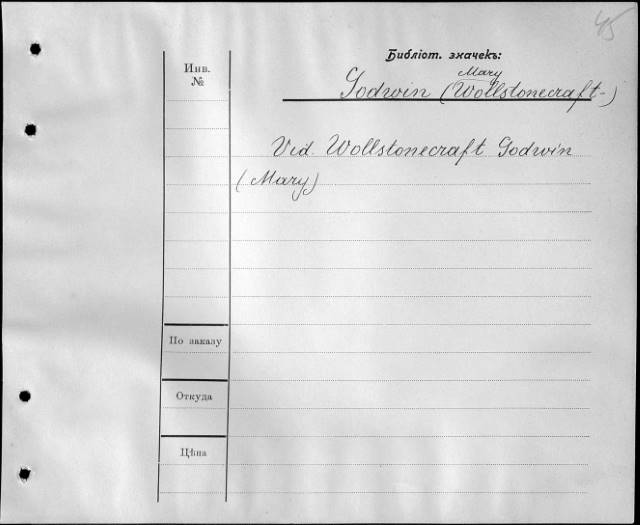 45
Библіот. значекъ:
Инв.
№
Mary
Godwin (Wollstonecraft-)
Vid. Wollstonecraft Godwin
(Mary)
По заказу
Откуда
Цѣна